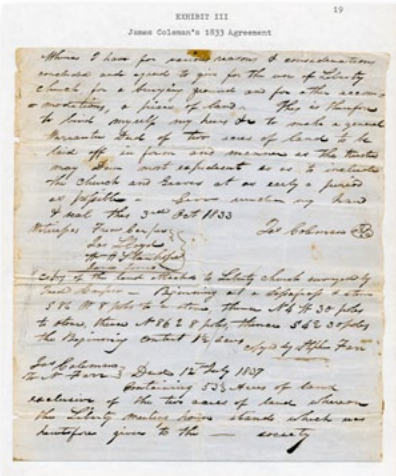 19
EXHIBIT III
James Coleman's 1833 Agreement
Whereas I have for various reasons & considerations
concluded and agreed to give for the use of Liberty
church for a burying ground and for other accom-
modations, a piece of land. This is therefore
to bind myself my heirs &c to make a general
Warrantee Deed of two acres of land to be
laid off in form and manner as the trustees
may deem most expedient so as to include
the church and Graves at as early a period
as possible - Given under my hand
& seal this 3rd Oct 1833
Witnesses
Jas Coleman
Jas Lloyd
Copy of the land attached to Liberty church surveyed by
Beginning at a & stone
S 86 W 8 poles to a stone, thence N 4 W 30 poles
to stone, thence N 86 E 8 poles thence S 4 E 30 poles
the Beginning Content 1½ acres
Jas Coleman
To Farr } Deed 12 July 1837
Containing 53½ Acres of land
exclusive of the two acres of land whereon
the Liberty meeting house stands which was
heretofore given to the — society